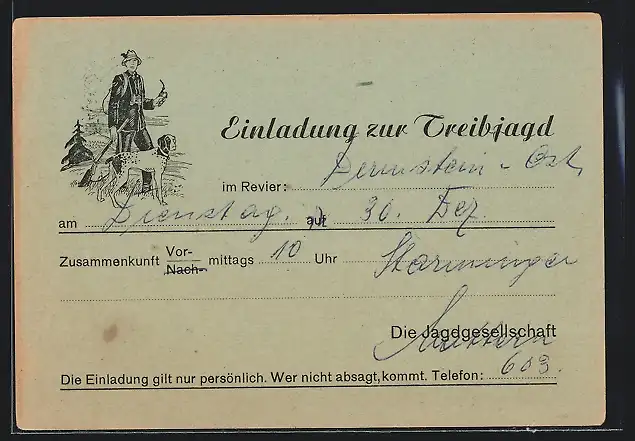 Einladung zur Treibjagd
im Revier: Dernstein - Ost,
am Dienstag, 30. Dez.
Zusammenkunft Vor- mittags 10 Uhr Starminger
Nach-
Die Jagdgesellschaft
Die Einladung gilt nur persönlich. Wer nicht absagt, kommt. Telefon: 603.